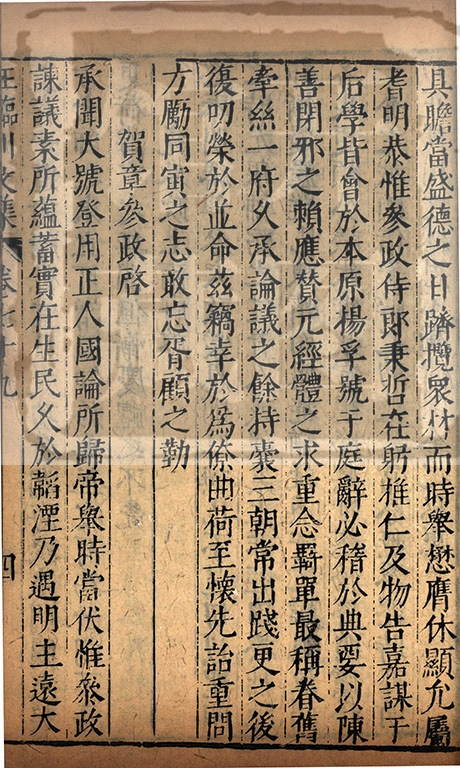 具瞻當盛德之日躋攬衆材而時舉懋膺休顯允屬
耆明恭惟參政侍郎秉哲在躬推仁及物告嘉謀于
后學皆會於本原楊孚號于庭辭必稽於典要以陳
善閉邪之賴應贊元經體之求重念羈單最稱眷舊
牽絲一府久承論議之餘持橐三朝常出踐更之後
復叨榮於並命茲竊幸於爲僚曲荷至懷先詒重問
方勵同寅之志敢忘胥顧之勤
賀章參政啓
承聞大號登用正人國論所歸帝舉時當伏惟參政
諫議素所蘊蓄實在生民久於韜湮乃遇明主遠大
王臨川文集 卷七十九 四